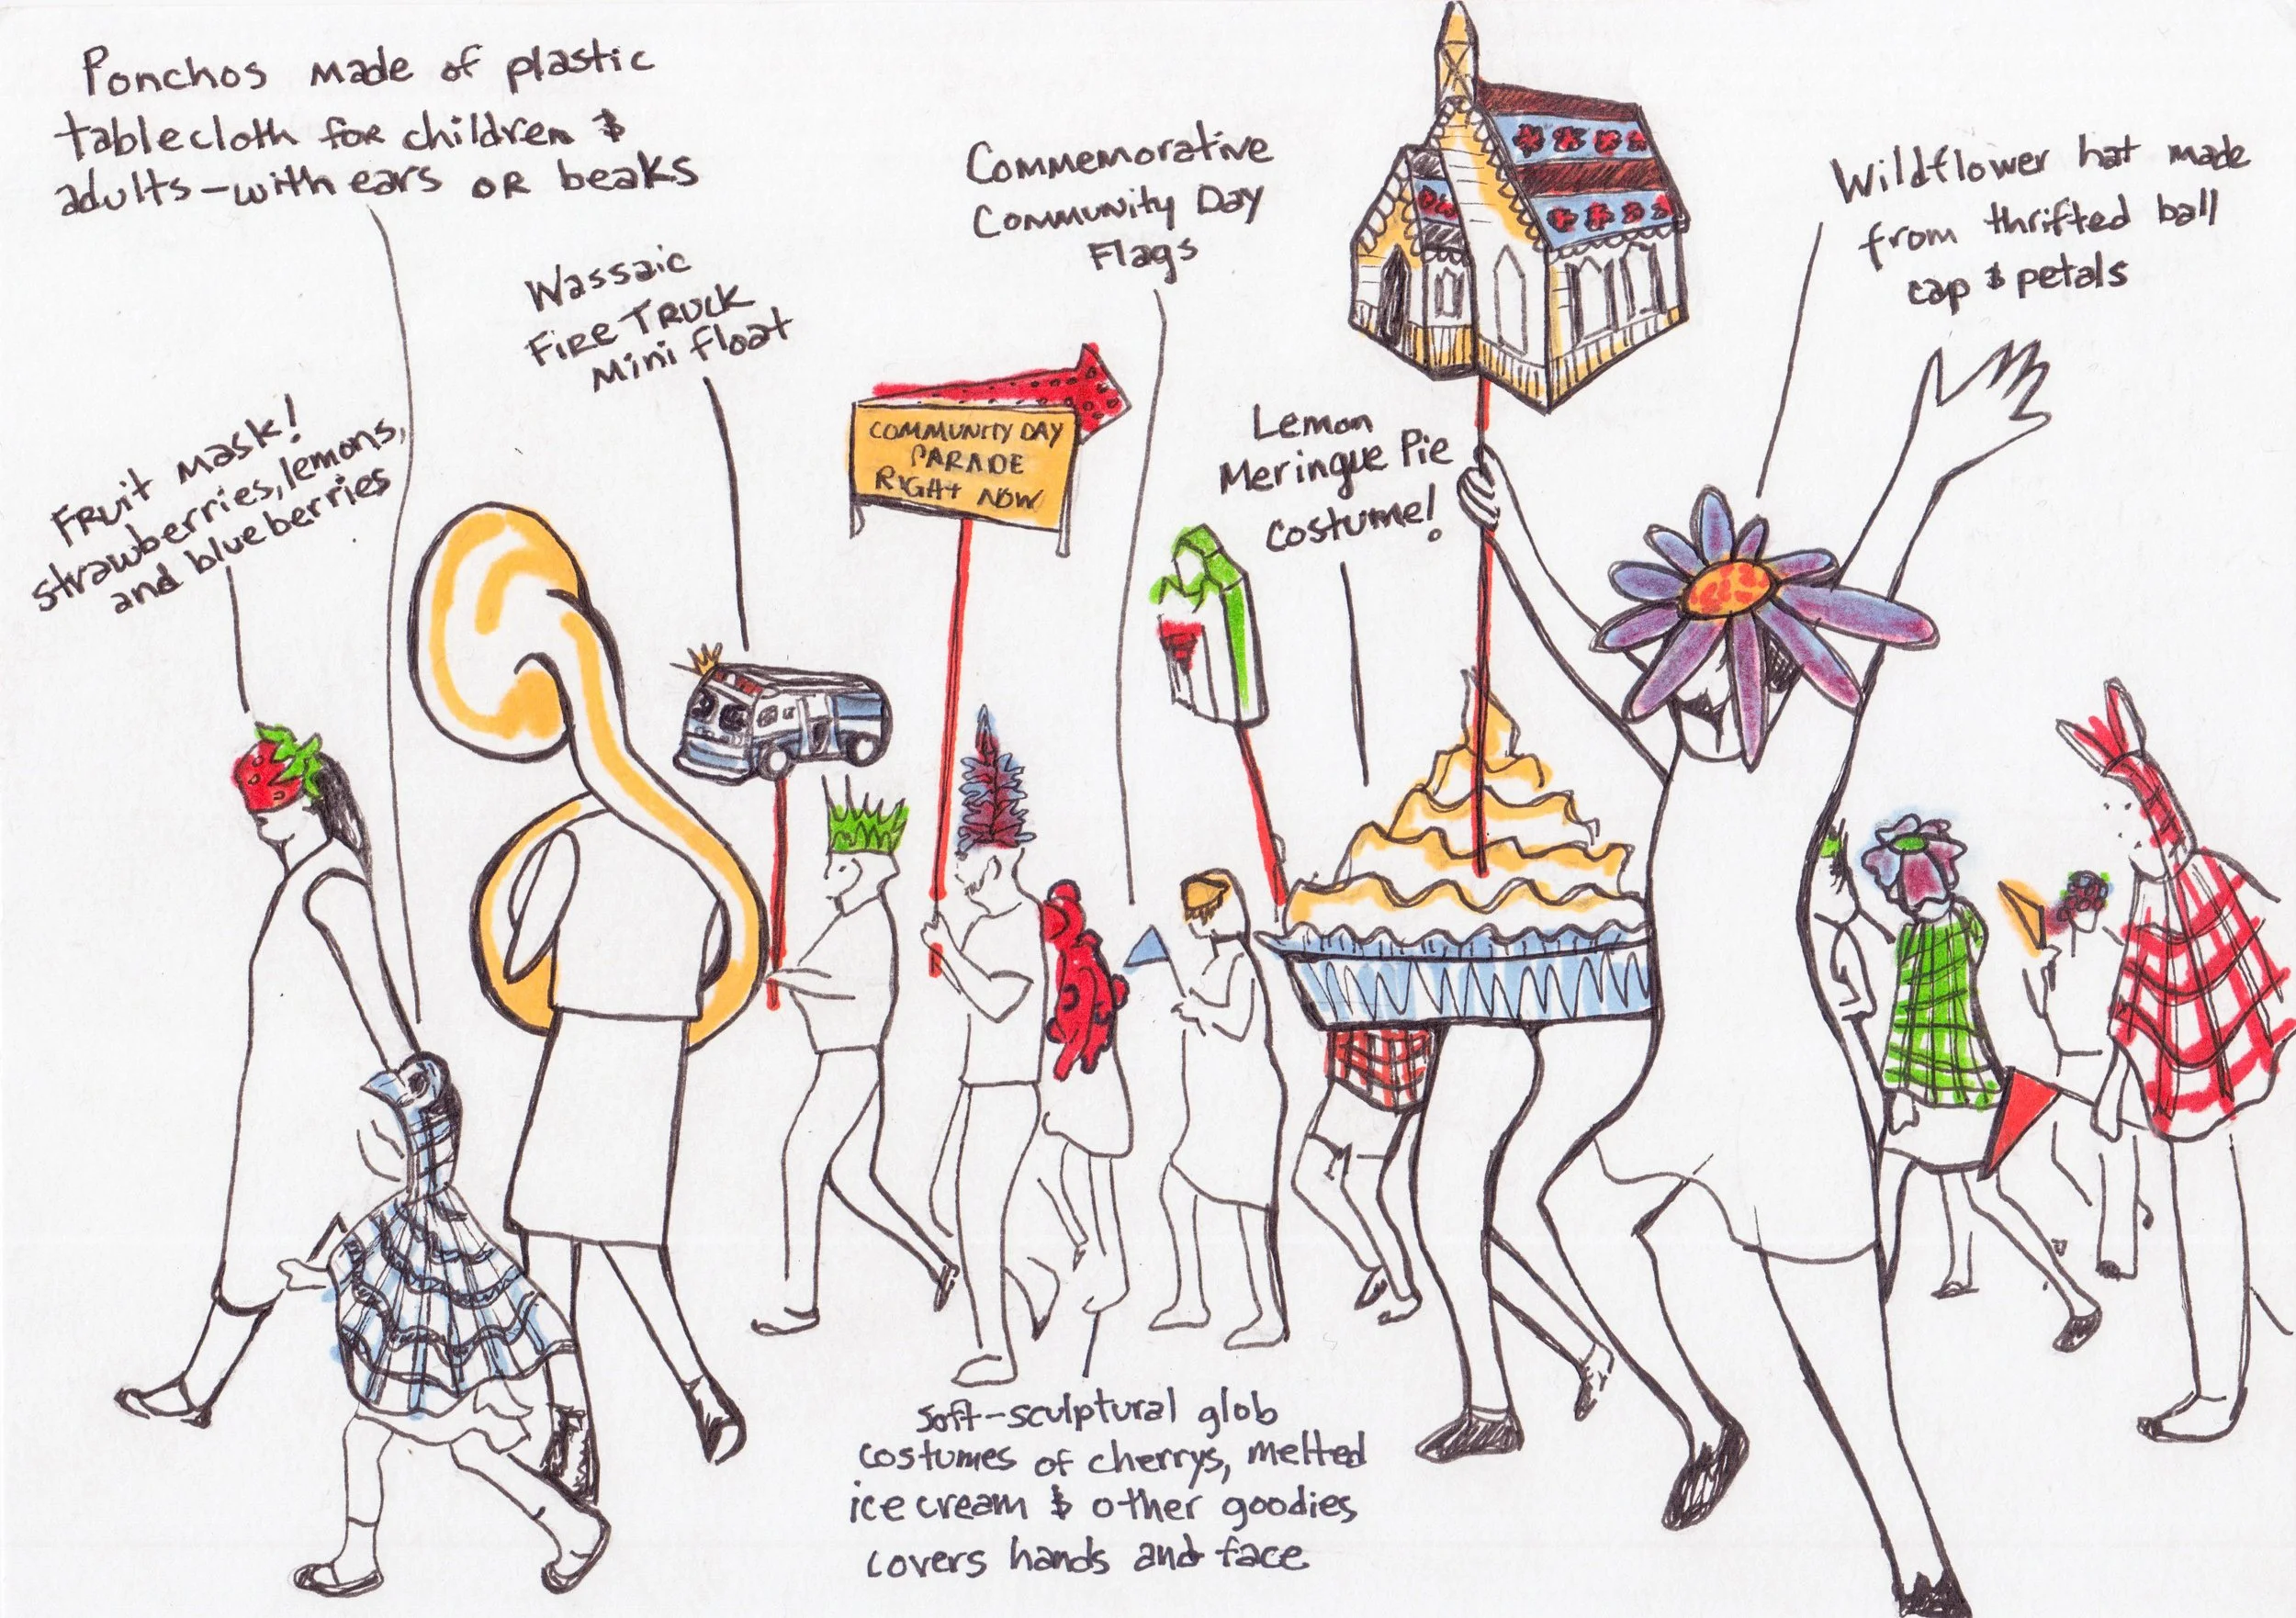 Ponchos made of plastic
tablecloth for children &
adults - with ears or beaks
Fruit mask!
strawberries, lemons,
and blueberries
Wassaic
Fire Truck
Mini float
COMMUNITY DAY
PARADE
RIGHT NOW
Commemorative
Community Day
Flags
Lemon
Meringue Pie
costume!
Wildflower hat made
from thrifted ball
cap & petals
soft-sculptural glob
costumes of cherrys, melted
ice cream & other goodies
covers hands and face